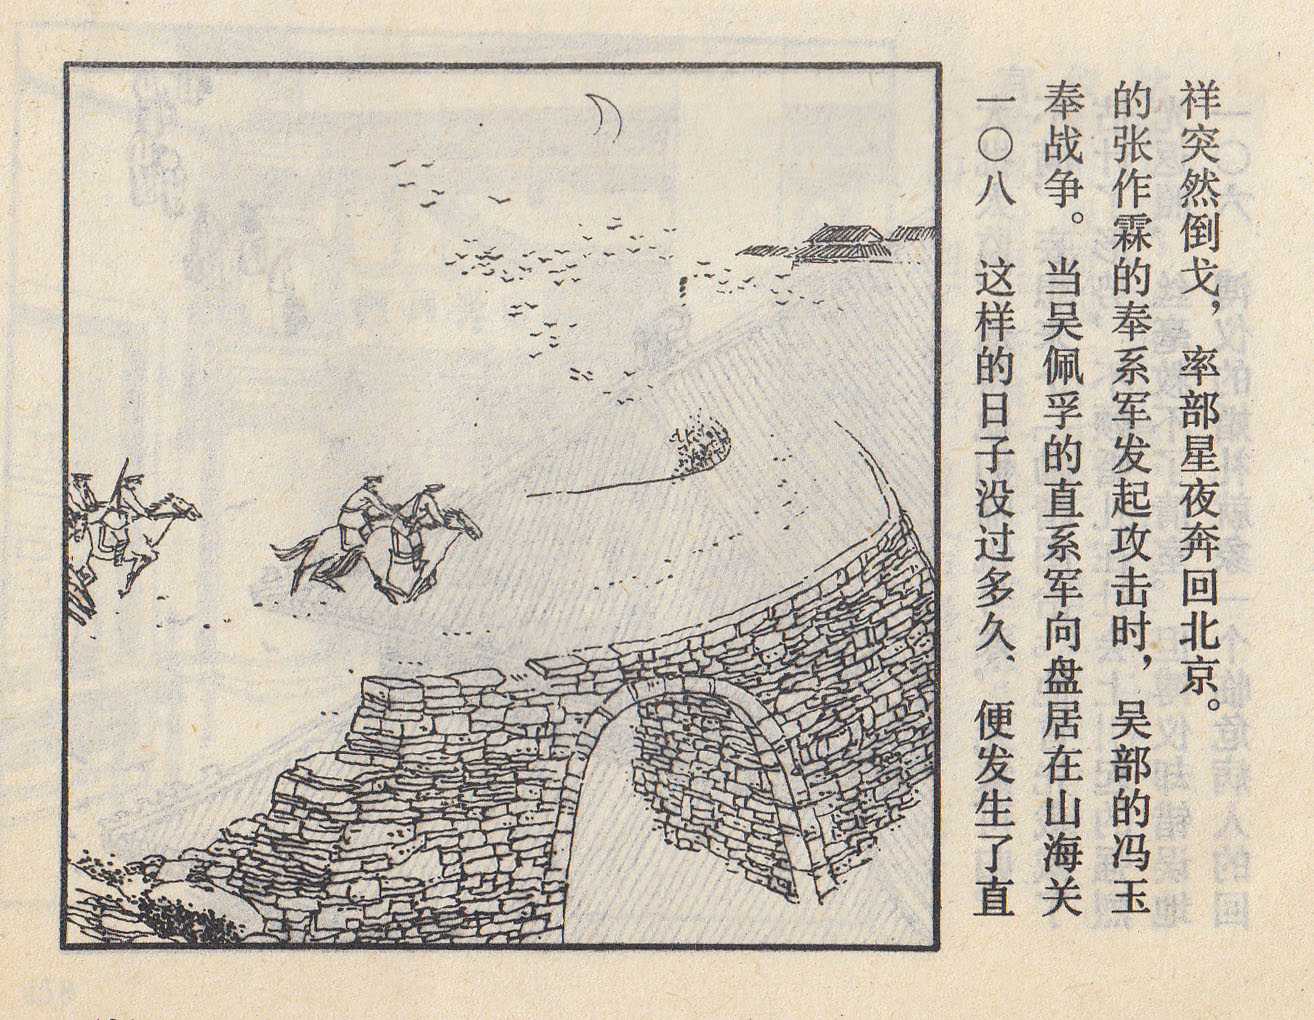 一〇八　这样的日子没过多久、便发生了直
奉战争。当吴佩孚的直系军向盘居在山海关
的张作霖的奉系军发起攻击时，吴部的冯玉
祥突然倒戈，率部星夜奔回北京。